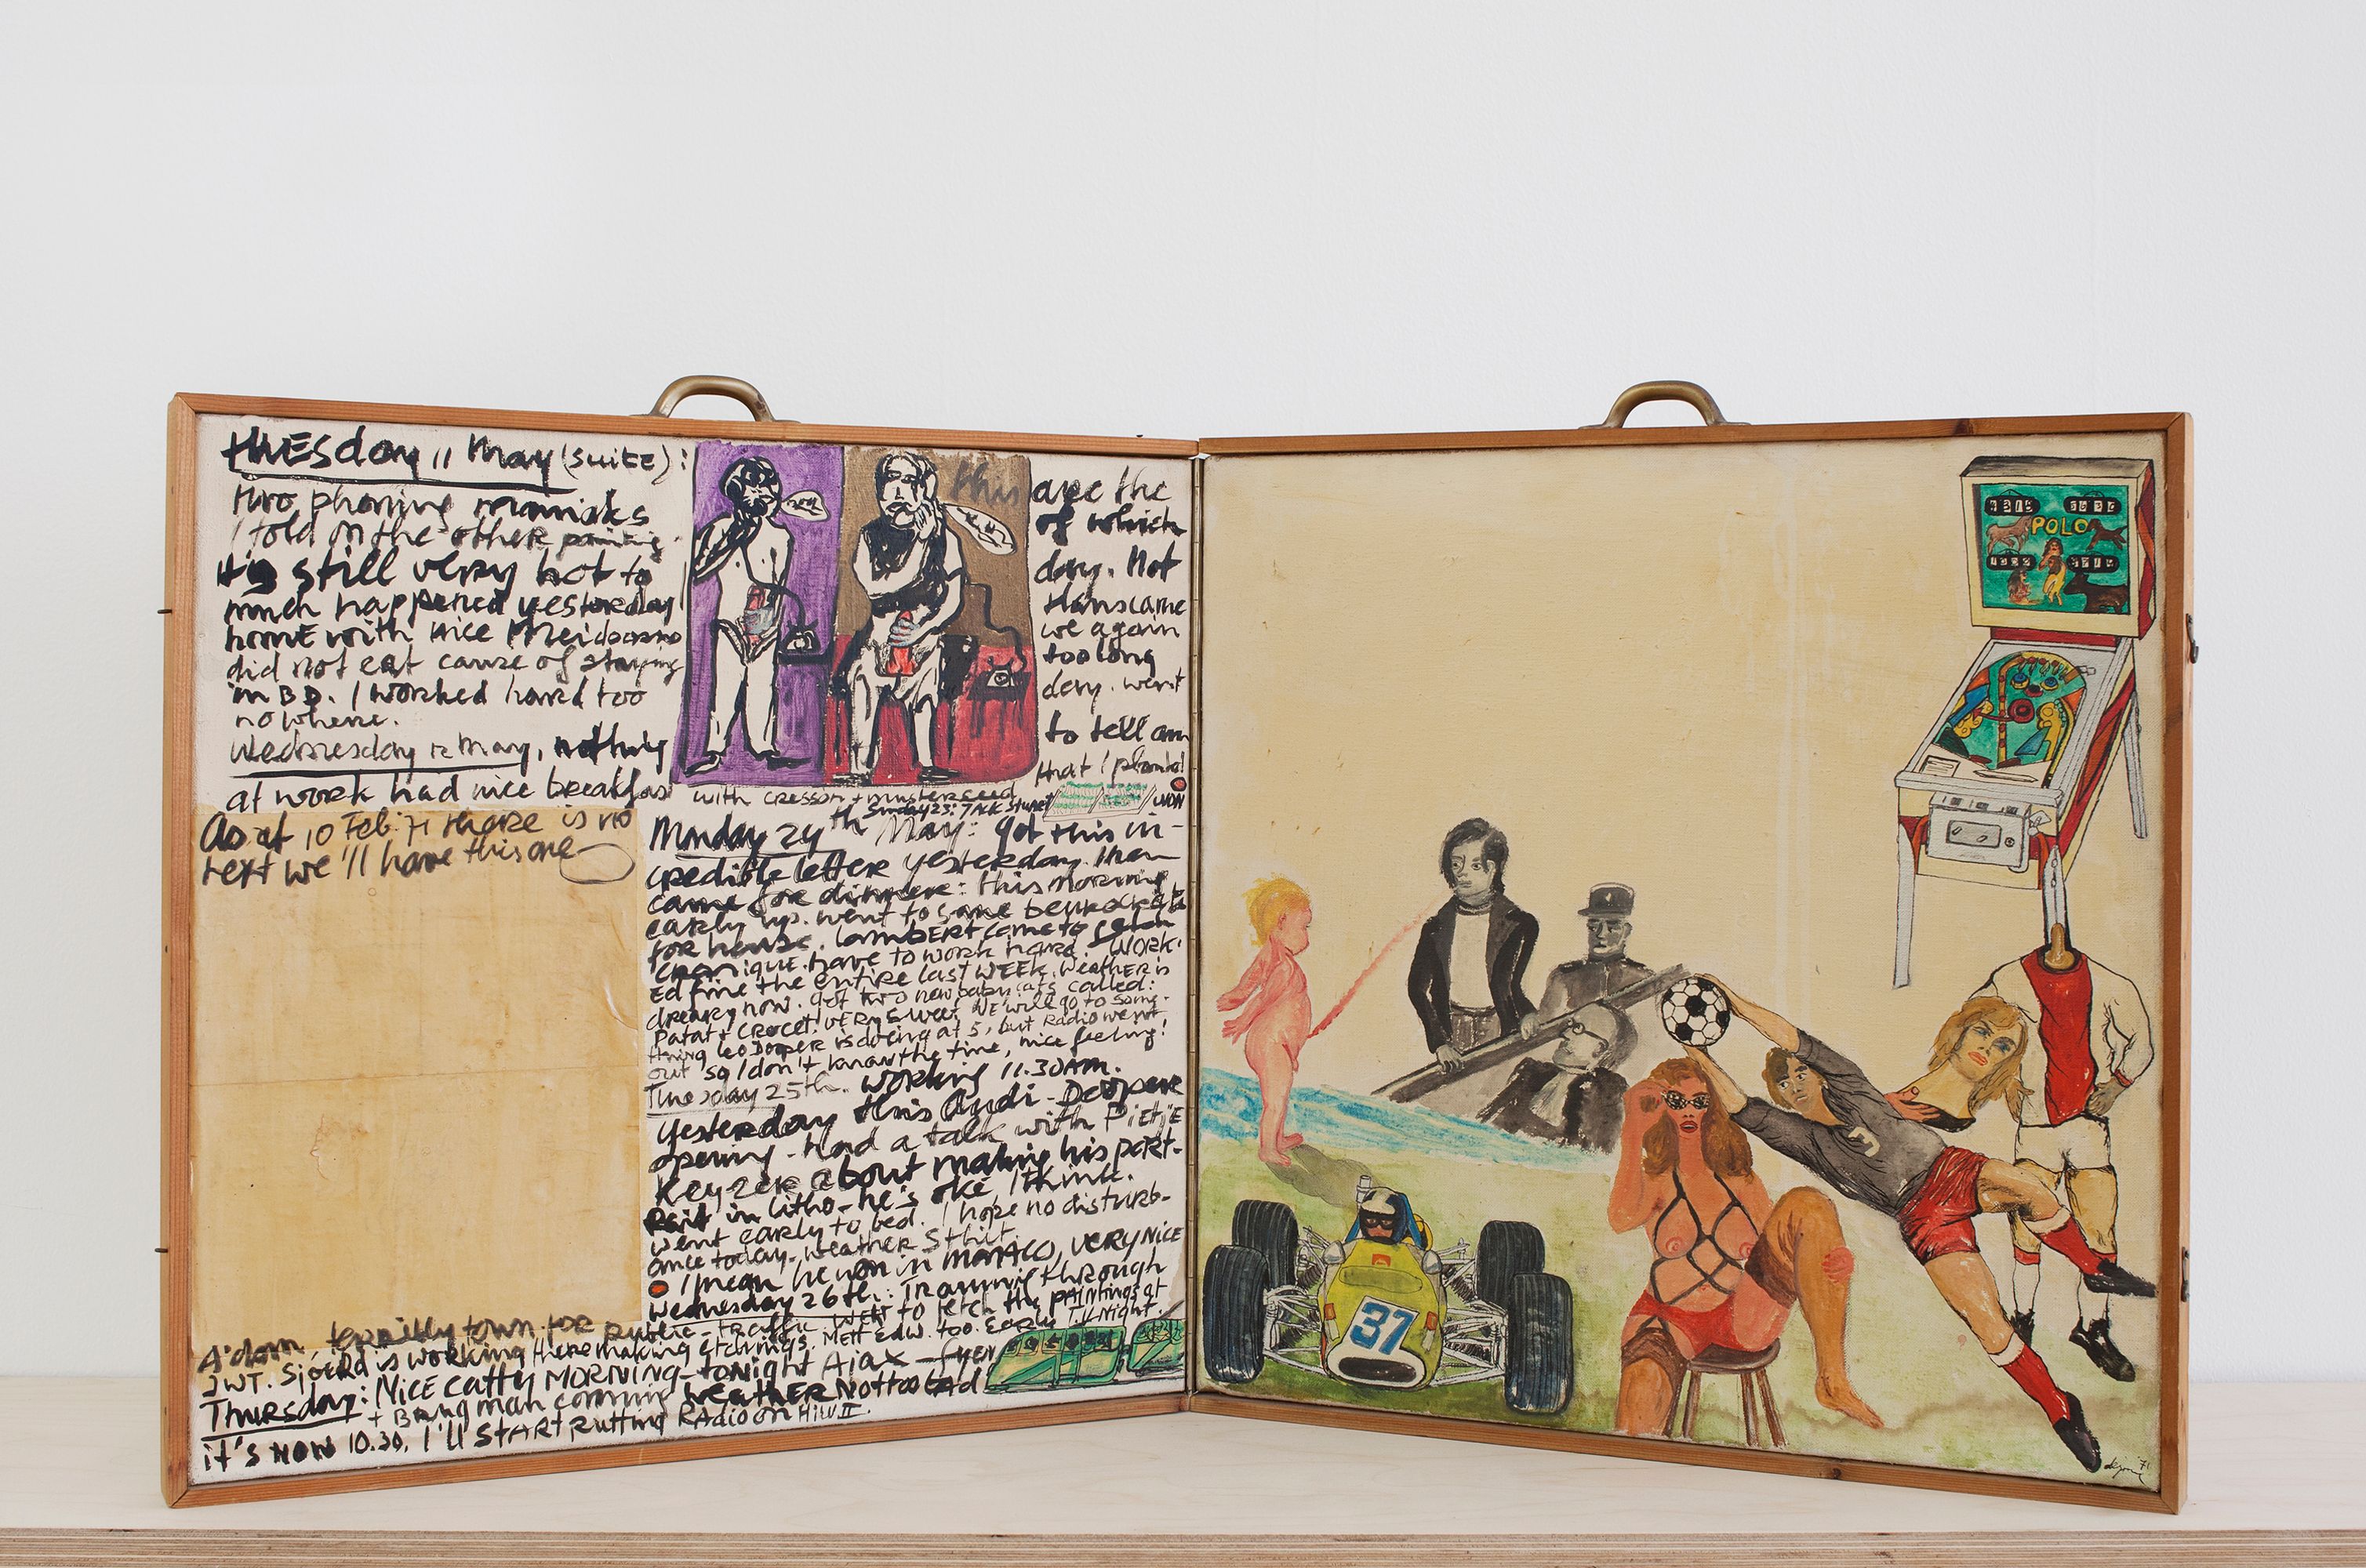 tuesday 11 may (suite):
two phoning maniaks
I told on the other painting.
it's still very hot to
much happened yesterday
home with nice
did not eat cause of staying
in BD. I worked hard too
nowhere.
Wednesday 12 may, nothing
at work had nice breakfast
this are the
of which
day. Not
Hans came
we again
too long
day. went
to tell am
that I planted
with cresson + musterseed
Sunday 23: JACK. Stuart
WON
As at 10 Feb. 71 there is no
text we'll have this one
Monday 24th May: got this in-
credible letter yesterday. Then
came for dinner: this morning
early up. went to some
for house. Lambert came to
have to work hard. WORK-
Ed fine the entire last WEEK. Weather is
dreary now. got two new baby cats called:
Patat + Crocet. VERY Sweet. We'll go to some-
thing Leo Dooper is doing at 5, but Radio went
out so I don't know the time, nice feeling!
Tuesday 25th. Working 11.30 AM.
yesterday this Audi - Doopere
opening. Had a talk with Pietje
Keyzer about making his port-
rait in litho - he's oké I think.
went early to bed. I hope no disturb-
ance today. Weather Sthil.
I mean he won in MONACO, VERY NICE
Wednesday 26th: Tramming through
A'dam, terribly town for public-traffic. Went to fetch the paintings at
JWT. Sjoerd is working there making etchings. Mett Edw. too. Early T.V. Night.
Thursday: Nice catty MORNING - toNight Ajax
+ Bang man coming Weather Not too bad
it's now 10.30. I'll START putting RAdio on HilV II.
POLO
37
3
'71